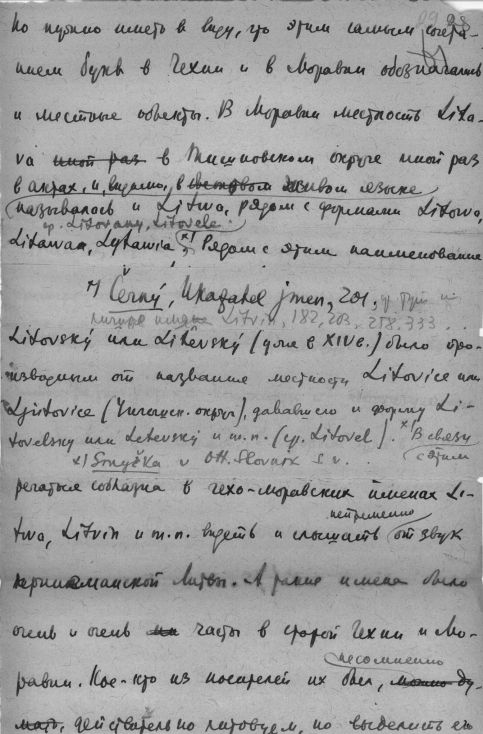 Но нужно иметь в виду, что этим самым сочета-
нием букв в Чехии и в Моравии обозначались
и местные объекты. В Моравии местность Lita-
va иной раз в Тишновском округе иной раз
в актах, и, видимо, в живом языке
называлось и Litwa, рядом с формами Litowa,
ср. Litovany, Litovele.
Litawan, Lytawia x) Рядом с этим наименование
x) Černý, Ukazatel jmen, 201,
личные имена Litvin, 182, 203, 258. 333 . .
Litovský или Litevský (уже в XIV в.) было про-
изводным от названия местности Litovice или
Ljutovice ( округ), дававшего и форму Li-
tovelsky или Letevský и т.п. (ср. Litovel). x В связи
с этим
x) v Ott. Slovník s. v.
соблазна в чехо-моравских именах Li-
непременно
twa, Litvin и т.п. видеть и слышать отзвук
Литвы. А такие имена было
очень и очень часты в старой Чехии и Мо-
несомненно
равии. Кое-кто из носителей их был, можно ду-
мать, действительно литовцем, но выделить его